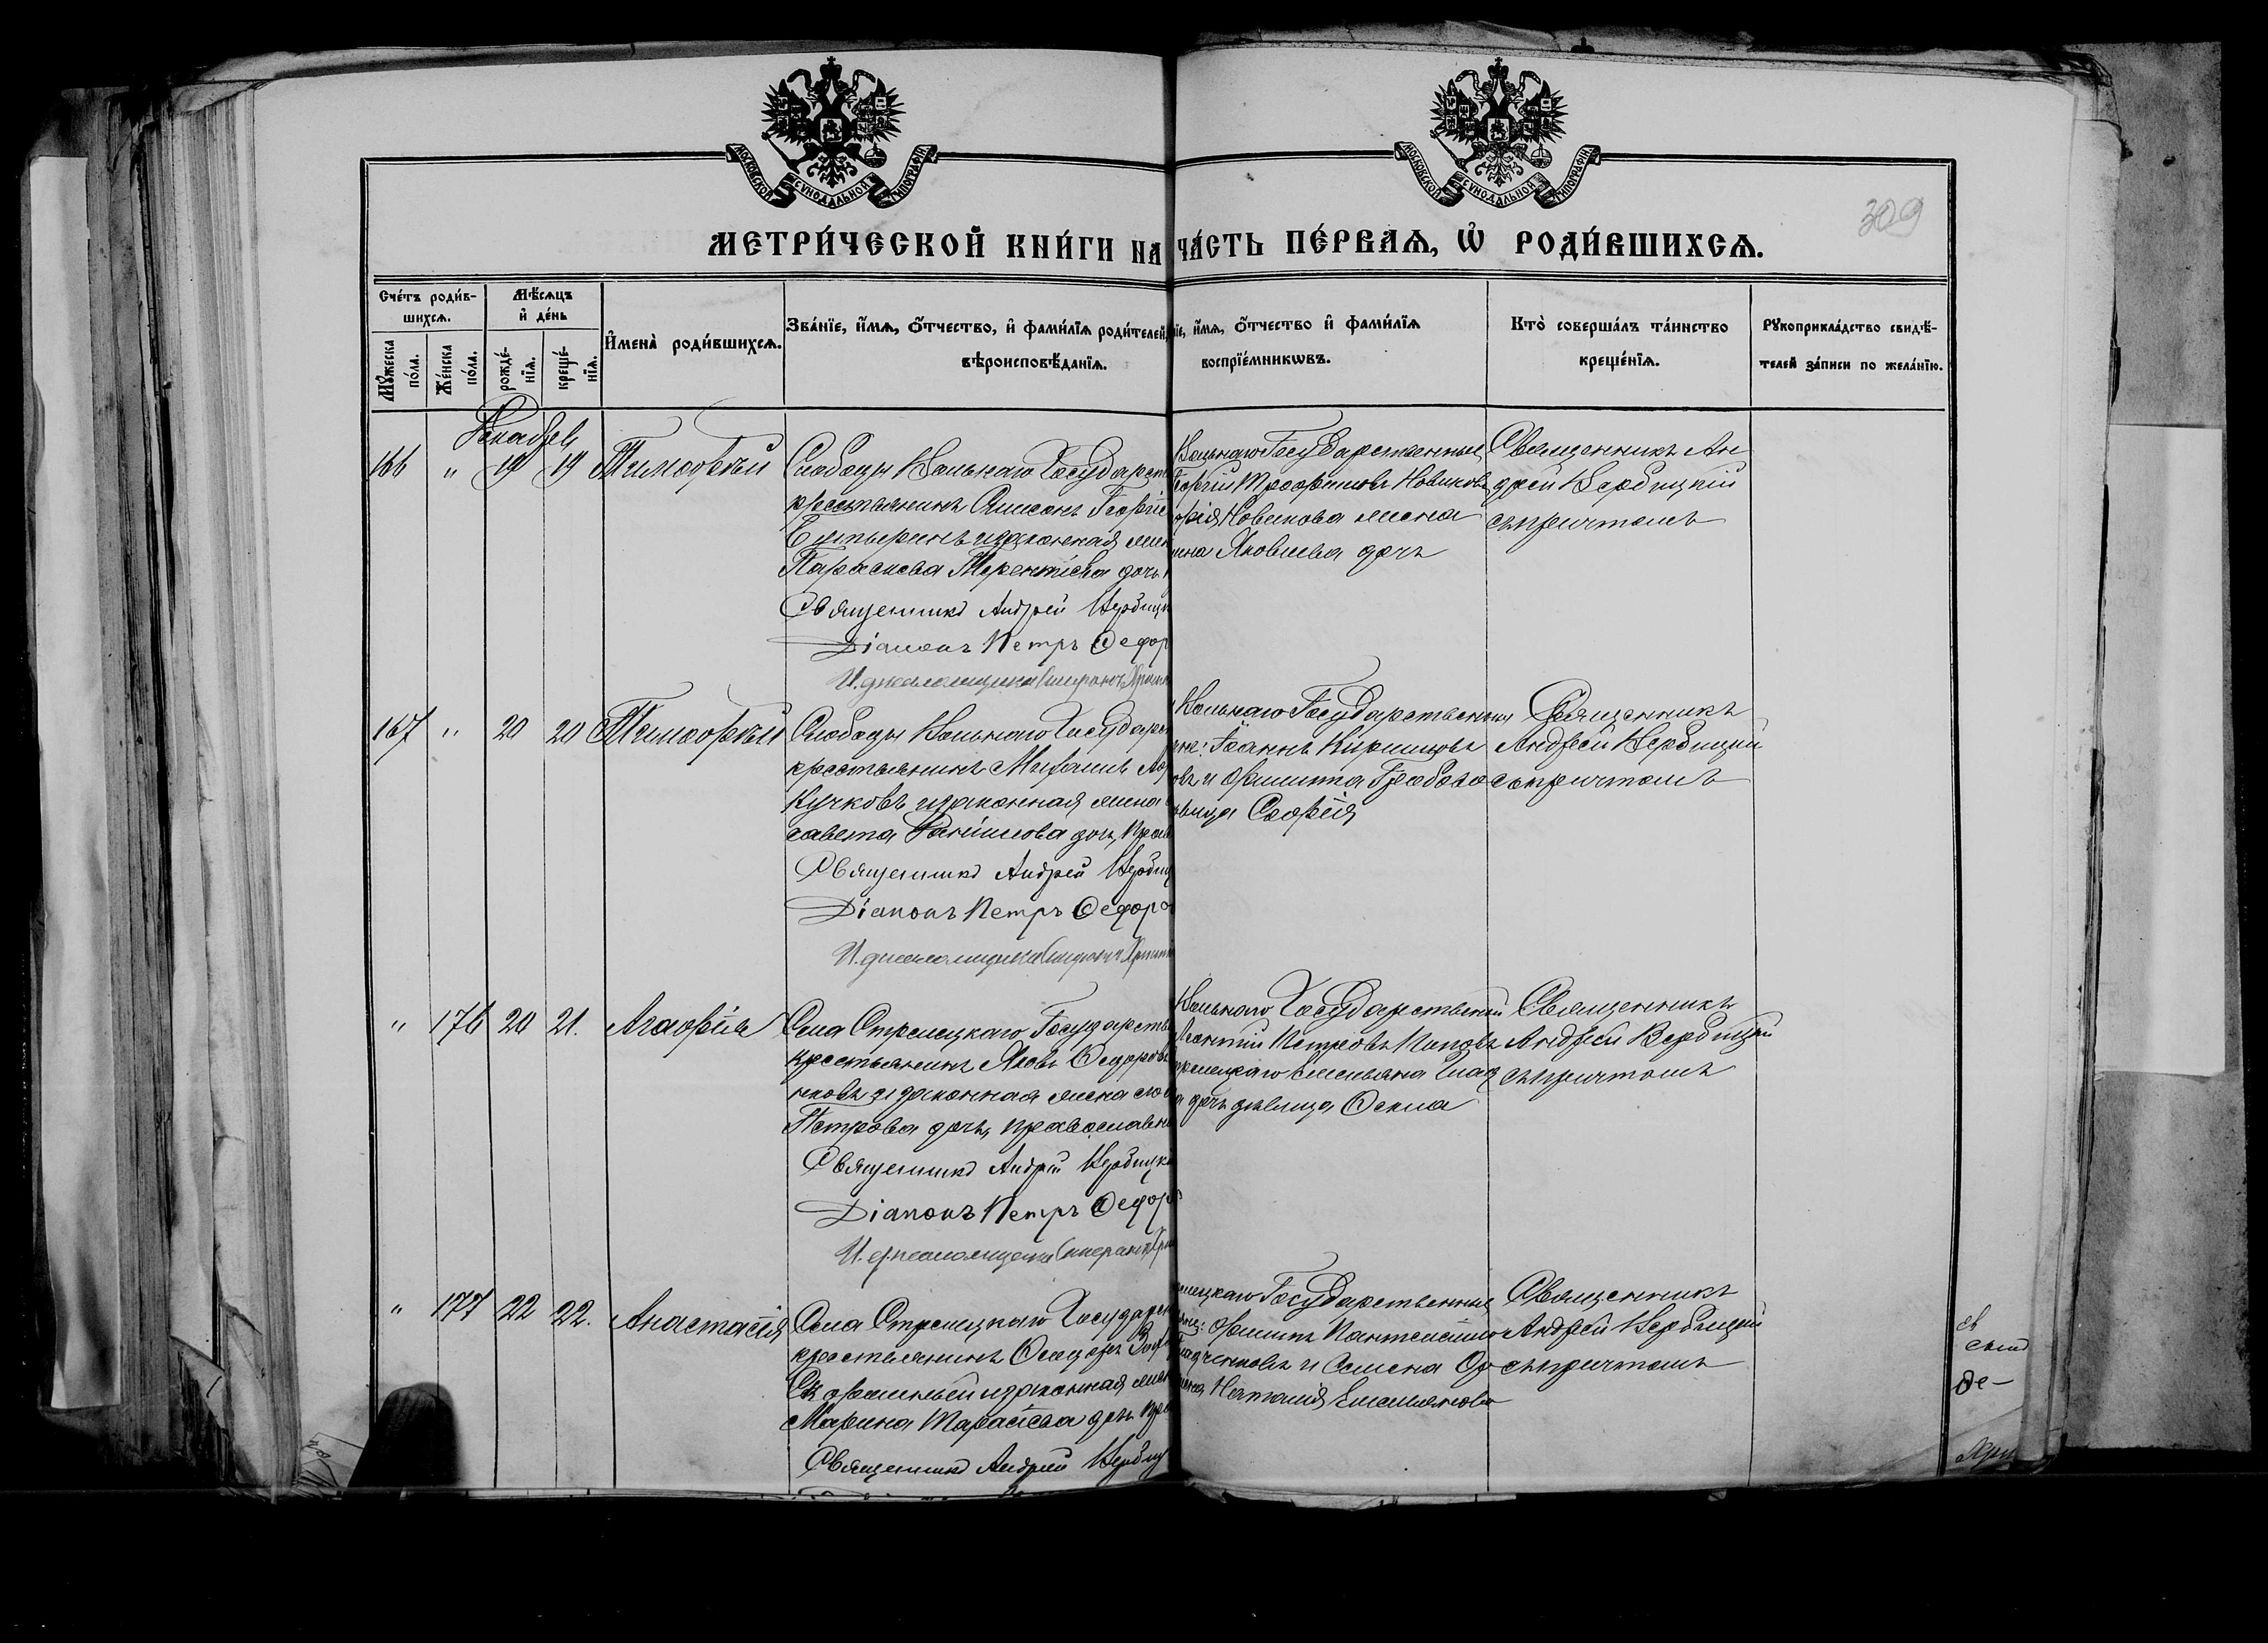 МОСКОВСКОЙ СѴНОДАЛЬНОЙ ТИПОГРАФІИ
МОСКОВСКОЙ СѴНОДАЛЬНОЙ ТИПОГРАФІИ
309
МЕТРИ́ЧЕСКОЙ КНИ́ГИ НА ЧА́СТЬ ПЕ́РВАѦ, Ѽ РОДИ́ВШИХСѦ.
Счéтъ роди́в-
шихсѧ.
Мꙋ́жеска
по́ла.
Же́нска
по́ла.
Мѣ́сѧцъ
и҆ де́нь
рожде́-
нїѧ.
креще́-
нїѧ.
И҆менà роди́вшихсѧ.
Зва́нїе, и҆́мѧ, ѻ҆́тчество, и҆ фами́лїѧ роди́телей,
вѣроисповѣ́данїѧ.
нїе, и҆́мѧ, ѻ҆́тчество и҆ фами́лїѧ
воспрїе́мникѡвъ.
Кто̀ соверша́лъ та́инство
креще́нїѧ.
Рꙋкоприкла́дство свидѣ́-
телей за́писи по жела́нїю.
Декабрь
166 " 19 19 Тимофей
Слободы Вольнаго Государст
крестьянинъ Симеонъ Георгіе
и законная жен
Параскева Терентіева дочь
Священникъ Андрей Вербицк
Діаконъ Петръ Федор
И. д. псаломщика
Вольнаго Государственный
Георгій Трофимовъ Новиковъ
Новикова жена
Яковлева дочь
Священникъ Ан
дрей Вербицкій
съ причтомъ
167 " 20 20 Тимофей
Слободы Вольнаго Государст
крестьянинъ Михаилъ
Кучковъ и законная жена
савета Даніилова дочь, прав
Священникъ Андрей Вербиц
Діаконъ Петръ Федоро
И. д. псаломщика
Вольнаго Государственный
Іоаннъ Кирилловъ
и Филиппа
вица Софія
Священникъ
Андрей Вербицкій
съ причтомъ
" 176 20 21. Агафія
Села Стрелецкаго Государств
крестьянинъ Яковъ Федоровъ
нковъ и законная жена его
Петрова дочь, православн
Священникъ Андрей Вербицк
Діаконъ Петръ Федор
И. д. псаломщика
Вольнаго Государственный
Леонтій Петровъ Поповъ
релецкаго Емельяна Глад
а дочь девица Ѳекла
Священникъ
Андрей Вербицкій
съ причтомъ
" 177 22 22. Анастасія
Села Стрелецкаго Государст
крестьянинъ
и законная жен
Марина Тарасіева дочь пра
Священникъ Андрей Вербиц
елецкаго Государственный
Филиппъ Пантелеймо
Гладченковъ и Семена
жена Наталія Емельянова
Священникъ
Андрей Вербицкій
съ причтомъ